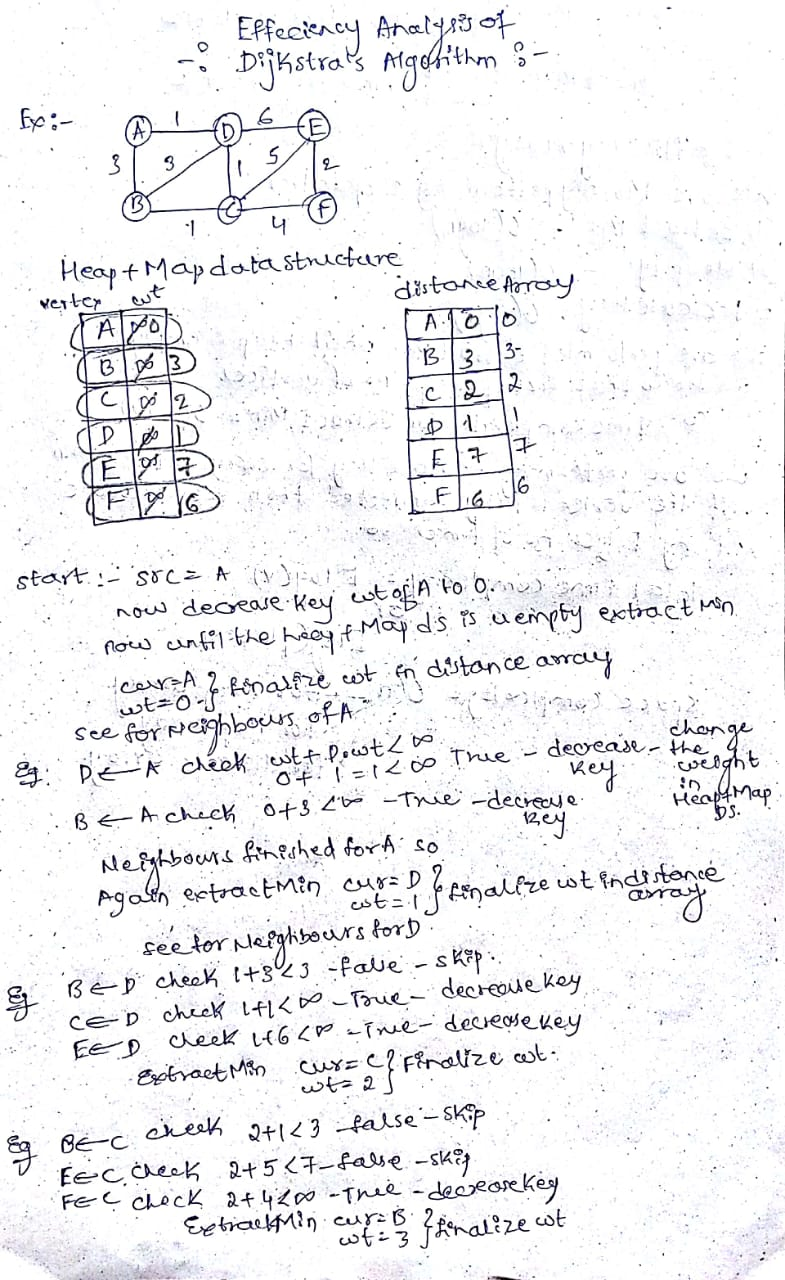 Effeciency Analysis of
-: Dijkstra's Algorithm :-
Ex :-
A 1 D 6 E
3 3 1 5 2
B 1 C 4 F
Heap + Map data structure
vertex wt
distance Array
A ∞ 0
B ∞ 3
C ∞ 2
D ∞ 1
E ∞ 7
F ∞ 6
A 0 0
B 3 3
C 2 2
D 1 1
E 7 7
F 6 6
start :- src = A
now decrease key wt of A to 0.
now until the heap + Map ds is uempty extract Min
cur=A } finalize wt in distance array
wt=0
see for Neighbours of A
Eg: D ← A check wt + D.wt < ∞
0 + 1 = 1 < ∞ True - decrease key - change the weight in Heap+Map DS.
B ← A check 0+3 < ∞ - True - decrease key
Neighbours finished for A so
Again extractMin cur=D } finalize wt in distance array
wt=1
see for Neighbours for D
Eg B ← D check 1+3<3 - false - skip.
C ← D check 1+1<∞ - True - decrease key
E ← D check 1+6<∞ - True - decrease key
Extract Min cur=C } Finalize wt.
wt=2
Eg B ← C check 2+1<3 - false - skip
E ← C check 2+5<7 - false - skip
F ← C check 2+4<∞ - True - decrease key
ExtractMin cur=B } finalize wt
wt=3